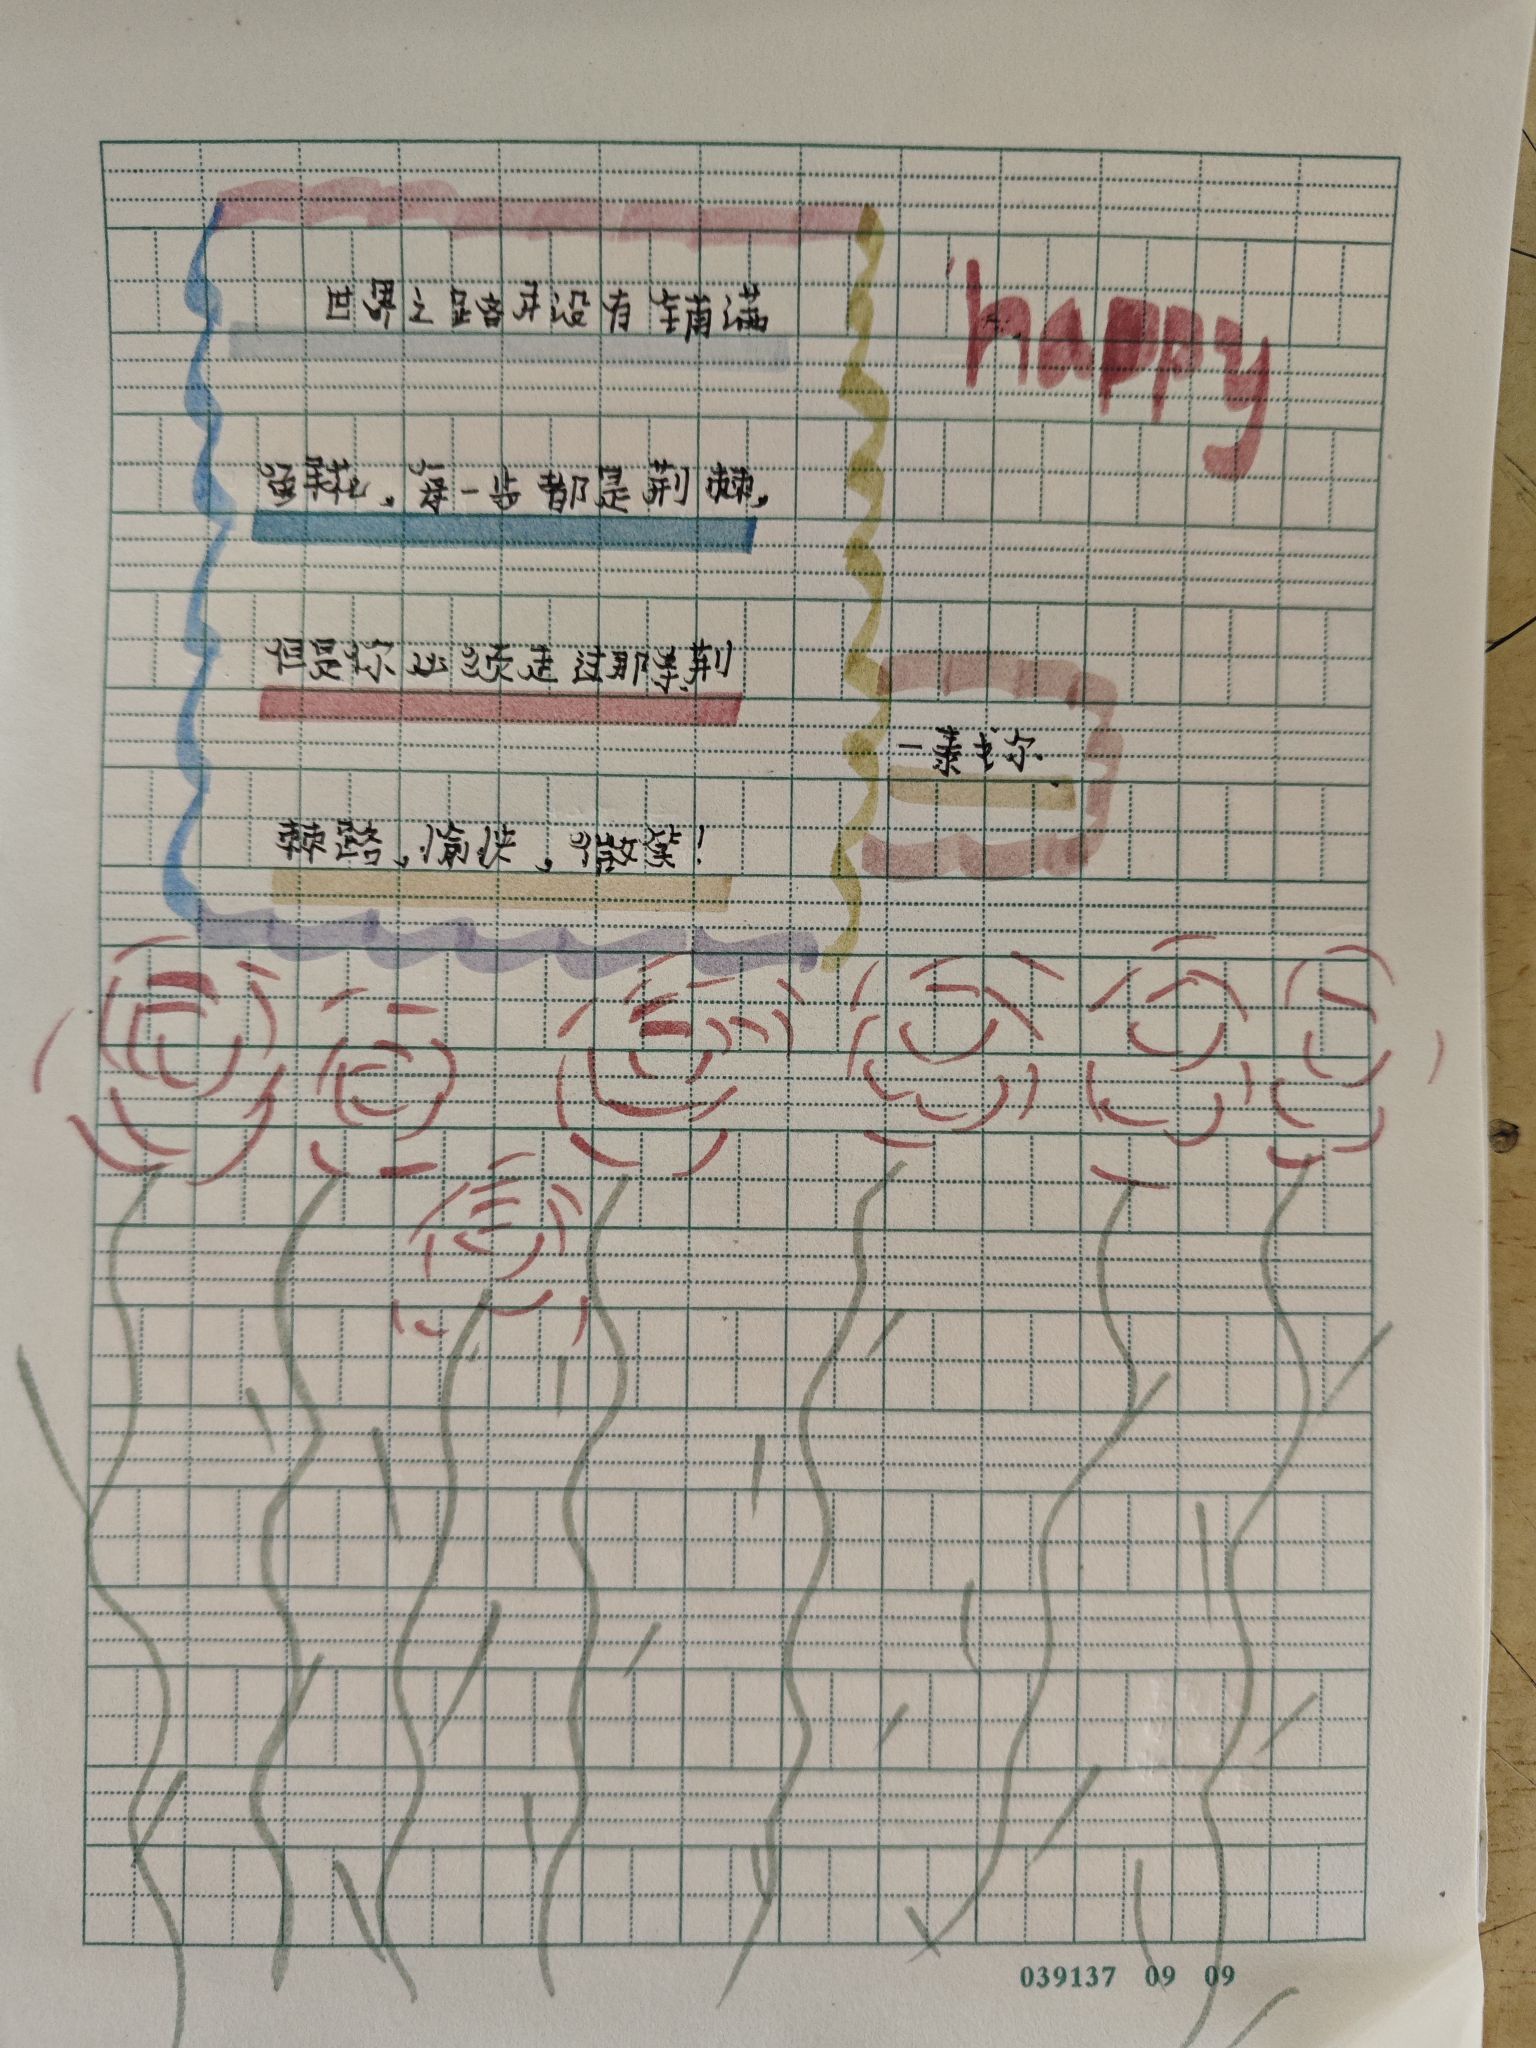 世界之路并没有铺满
happy
鲜花，每一步都是荆棘，
但是你必须走过那条荆
—泰戈尔
棘路，愉快，微笑！
039137 09 09